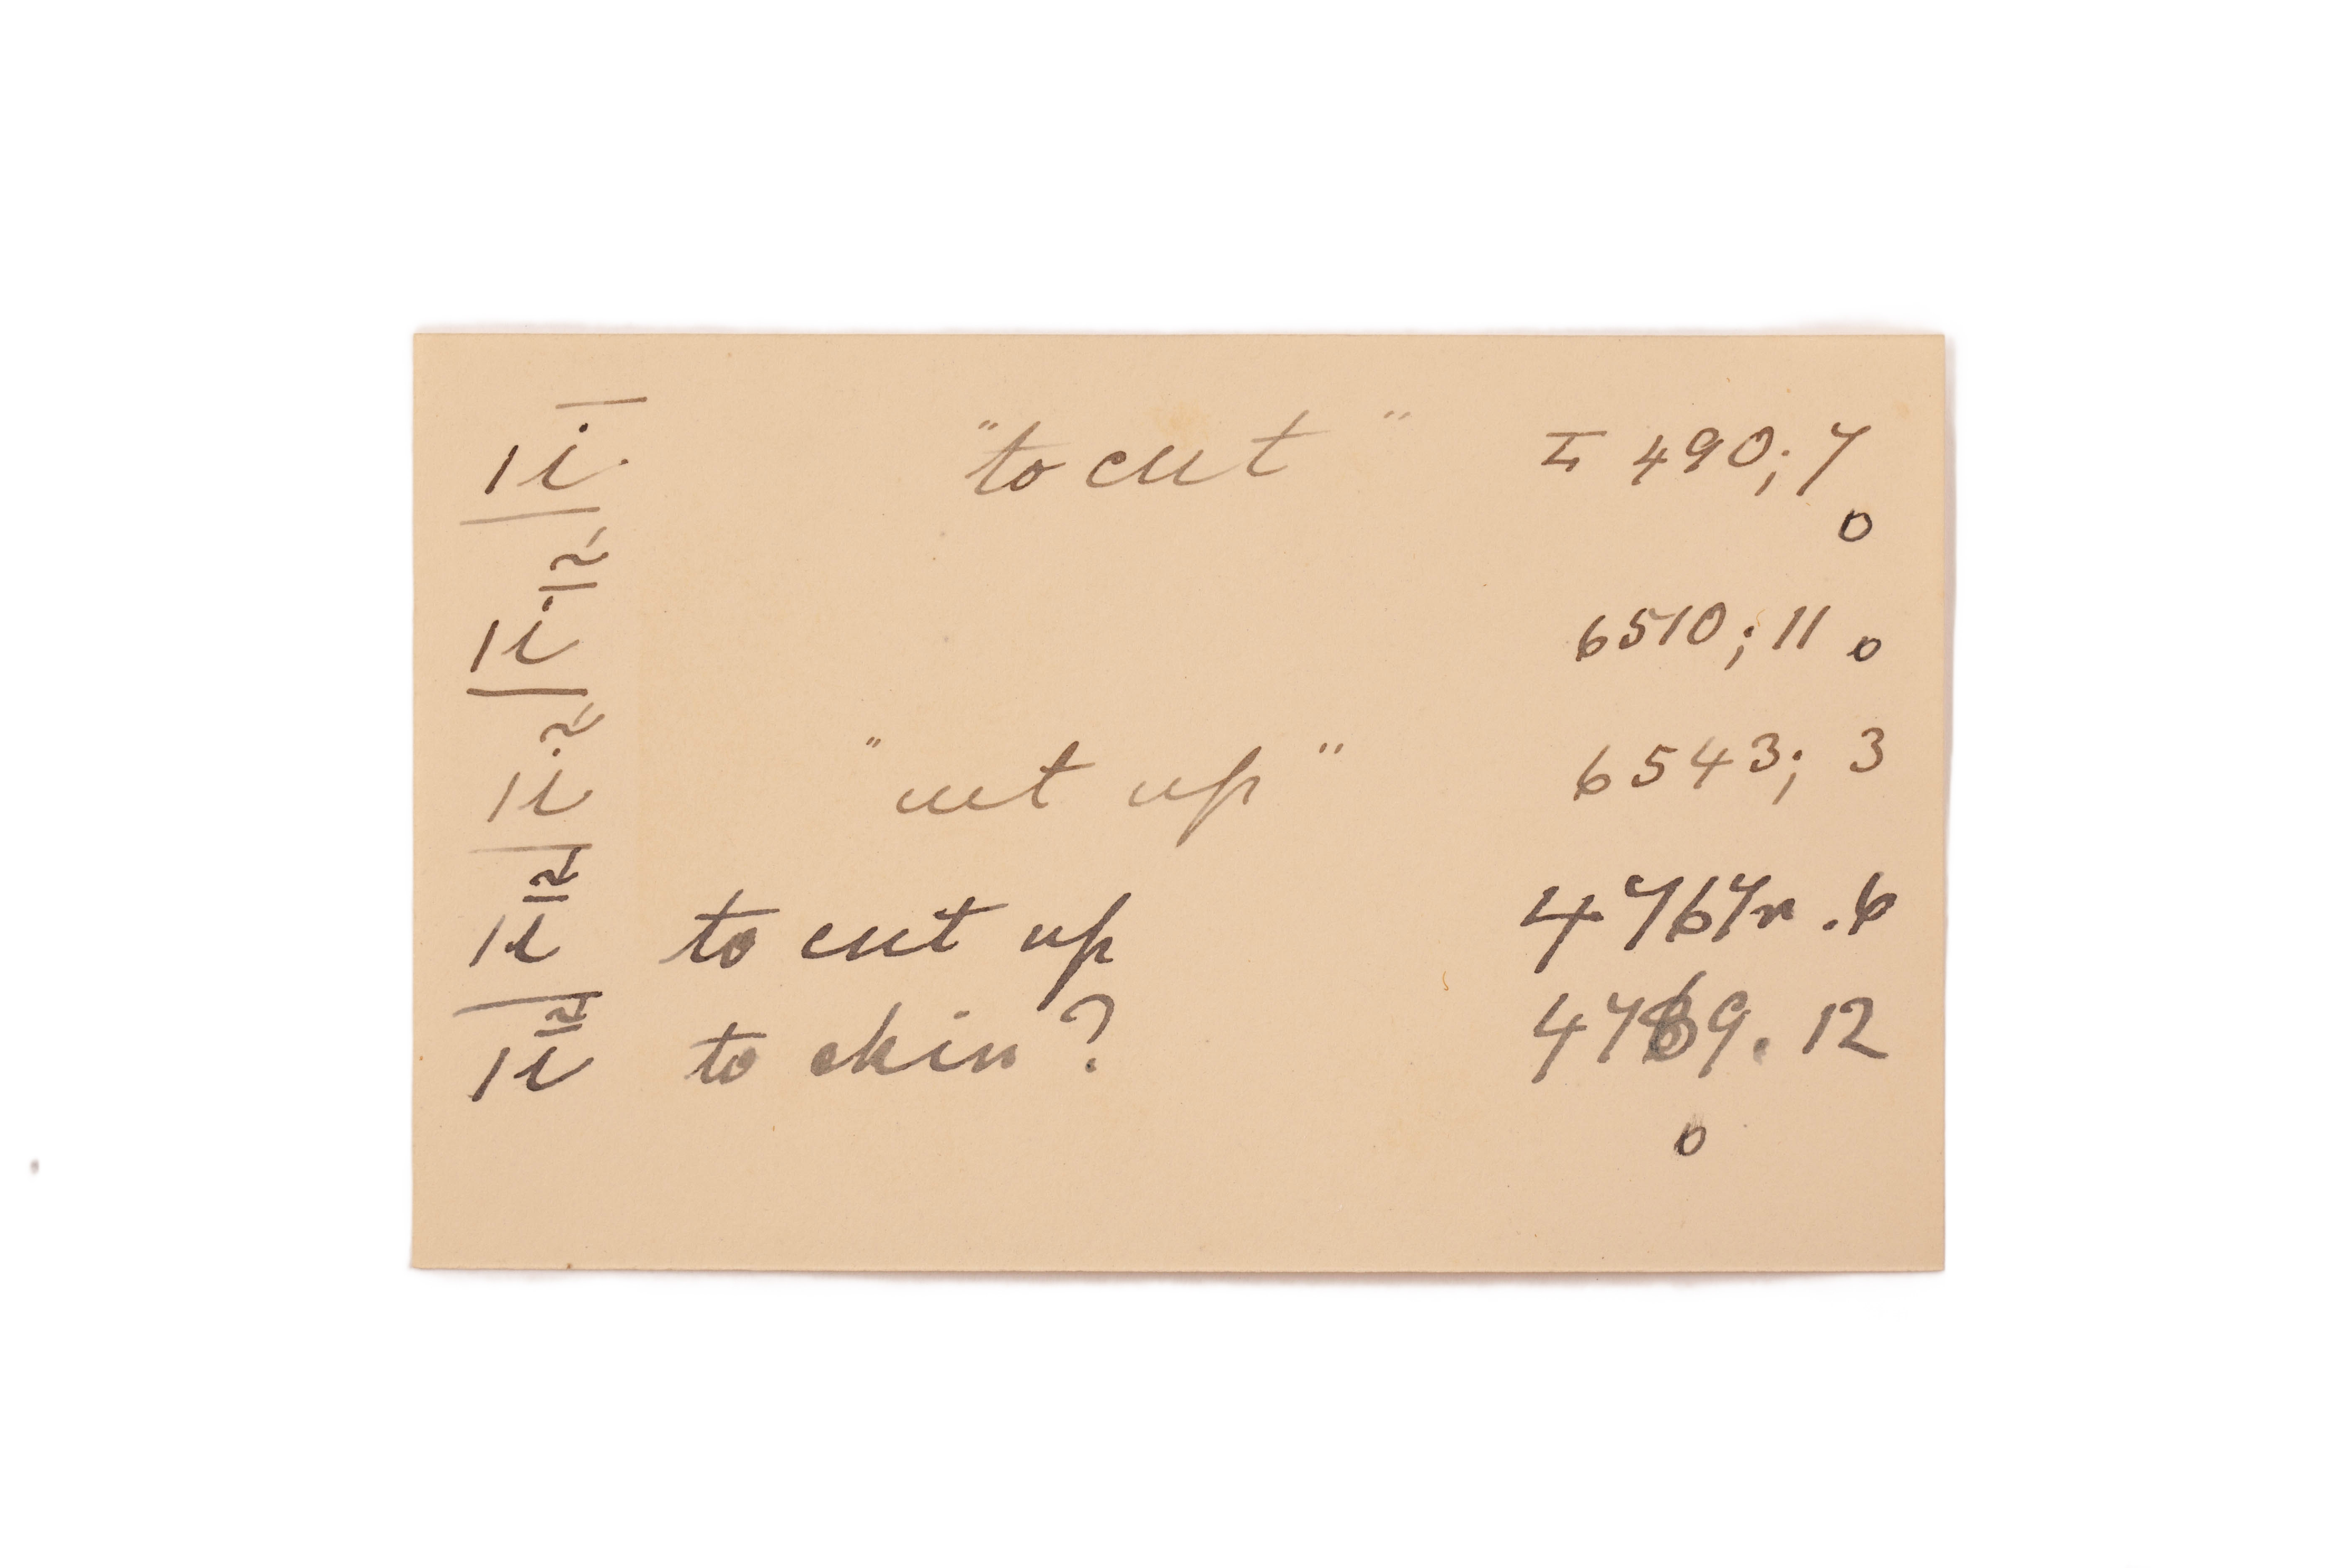 |ī̱. "to cut" 490; 7
o
|ī̱̃ 6510; 11 o
|ĩ̱ "cut up" 6543; 3
|ī̱̃ to cut up 4767r .6
|ī̃ to skin? 4769. 12
o